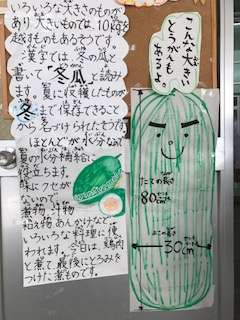 いろいろな大きさのものが
あり大きいものでは、10kgを
越すものもあるそうです。
漢字では「冬の瓜」と
書いて「冬瓜」と読み
ます。夏に収穫して
冬まで保存できること
から名づけられたそうです
ほとんどが水分なので
夏の水分補給に
役立ちます。
味にクセが
ないので、
煮物、汁物
和え物、あんかけなど
いろいろな料理に使
われます。今日は、鶏肉
と煮て、最後にとろみを
つけた煮ものです。
こんな大きい
とうがんも
あるよ。
たての長さ
80cm
よこの長さ
30cm